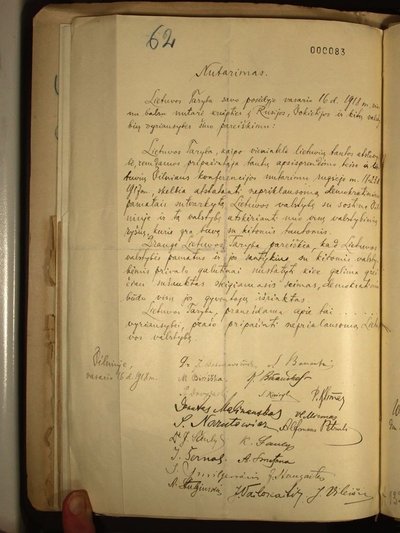 62
000083
Nutarimas.
Lietuvos Taryba savo posėdyje vasario 16 d. 1918 m. vienu
balsu nutarė kreiptis į Rusijos, Vokietijos ir kitų valsty-
bių vyriausybes šiuo pareiškimu:
Lietuvos Taryba, kaipo vienintelė lietuvių tautos atstovy-
bė, remdamos pripažintąja tautų apsisprendimo teise ir lie-
tuvių Vilniaus konferencijos nutarimu rugsėjo m. 18-23 d.
1917 m., skelbia atstatanti nepriklausomą demokratiniais
pamatais sutvarkytą Lietuvos valstybę su sostine Vil-
niuje ir tą valstybę atskirianti nuo visų valstybinių
ryšių, kurie yra buvę su kitomis tautomis.
Drauge Lietuvos Taryba pareiškia, kad Lietuvos
valstybės pamatus ir jos santykius su kitomis valsty-
bėmis privalo galutinai nustatyti kiek galima grei-
čiau sušauktas steigiamasis seimas, demokratiniu
būdu visų jos gyventojų išrinktas.
Lietuvos Taryba, pranešdama apie tai
vyriausybei, prašo pripažinti nepriklausomą Lietu-
vos valstybę.
Vilniuje,
vasario 16 d. 1918 m.
Dr. J. Basanavičius S. Banaitis
M. Biržiška K. Bizauskas
P. Klimas
Donatas Malinauskas Vl. Mironas
S. Narutowicz Alfonsas Petrulis
Dr. J. Šaulys K. Šaulys
J. Šernas A. Smetona
J. Smilgevičius J. Staugaitis
A. Stulginskis J. Vailokaitis J. Vileišis